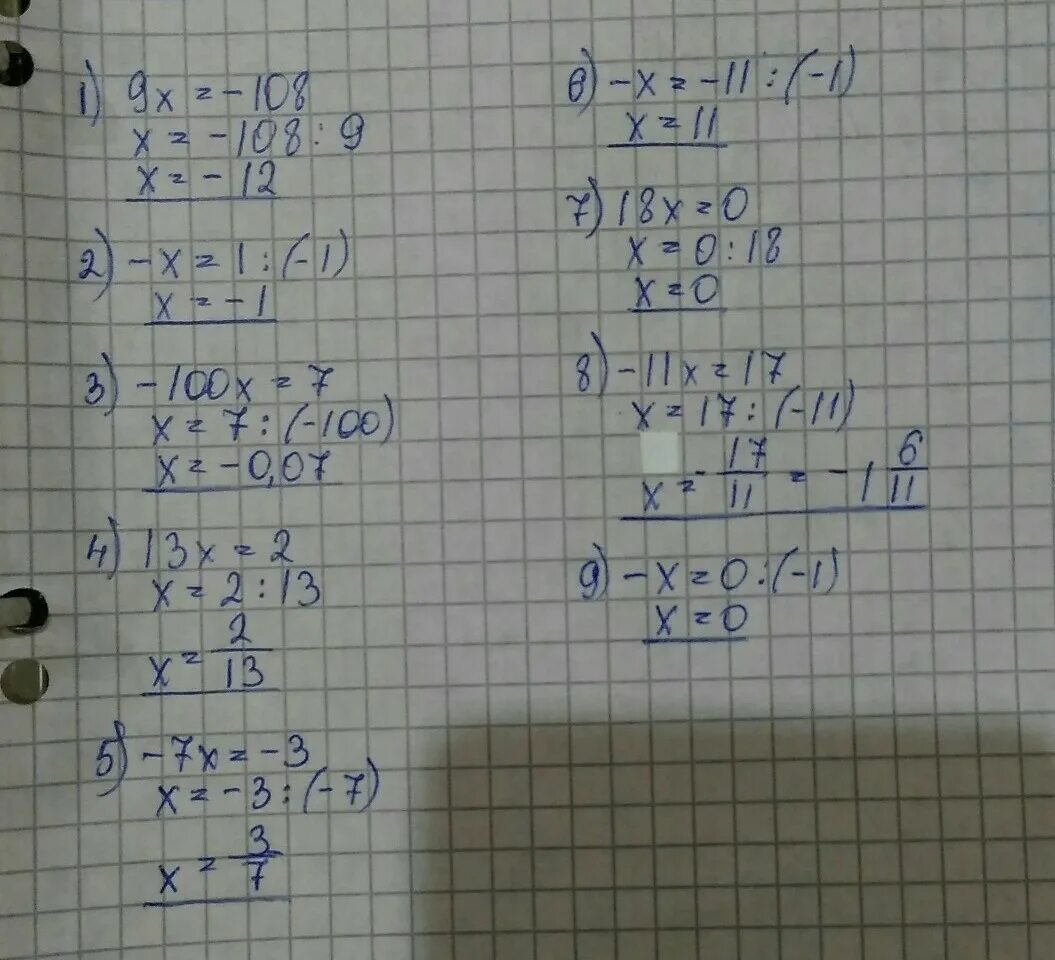 1) 9x = -108
x = -108 : 9
x = -12
2) -x = 1 : (-1)
x = -1
3) -100x = 7
x = 7 : (-100)
x = -0,07
4) 13x = 2
x = 2 : 13
x = 2/13
5) -7x = -3
x = -3 : (-7)
x = 3/7
6) -x = -11 : (-1)
x = 11
7) 18x = 0
x = 0 : 18
x = 0
8) -11x = 17
x = 17 : (-11)
x = -17/11 = -1 6/11
9) -x = 0 : (-1)
x = 0